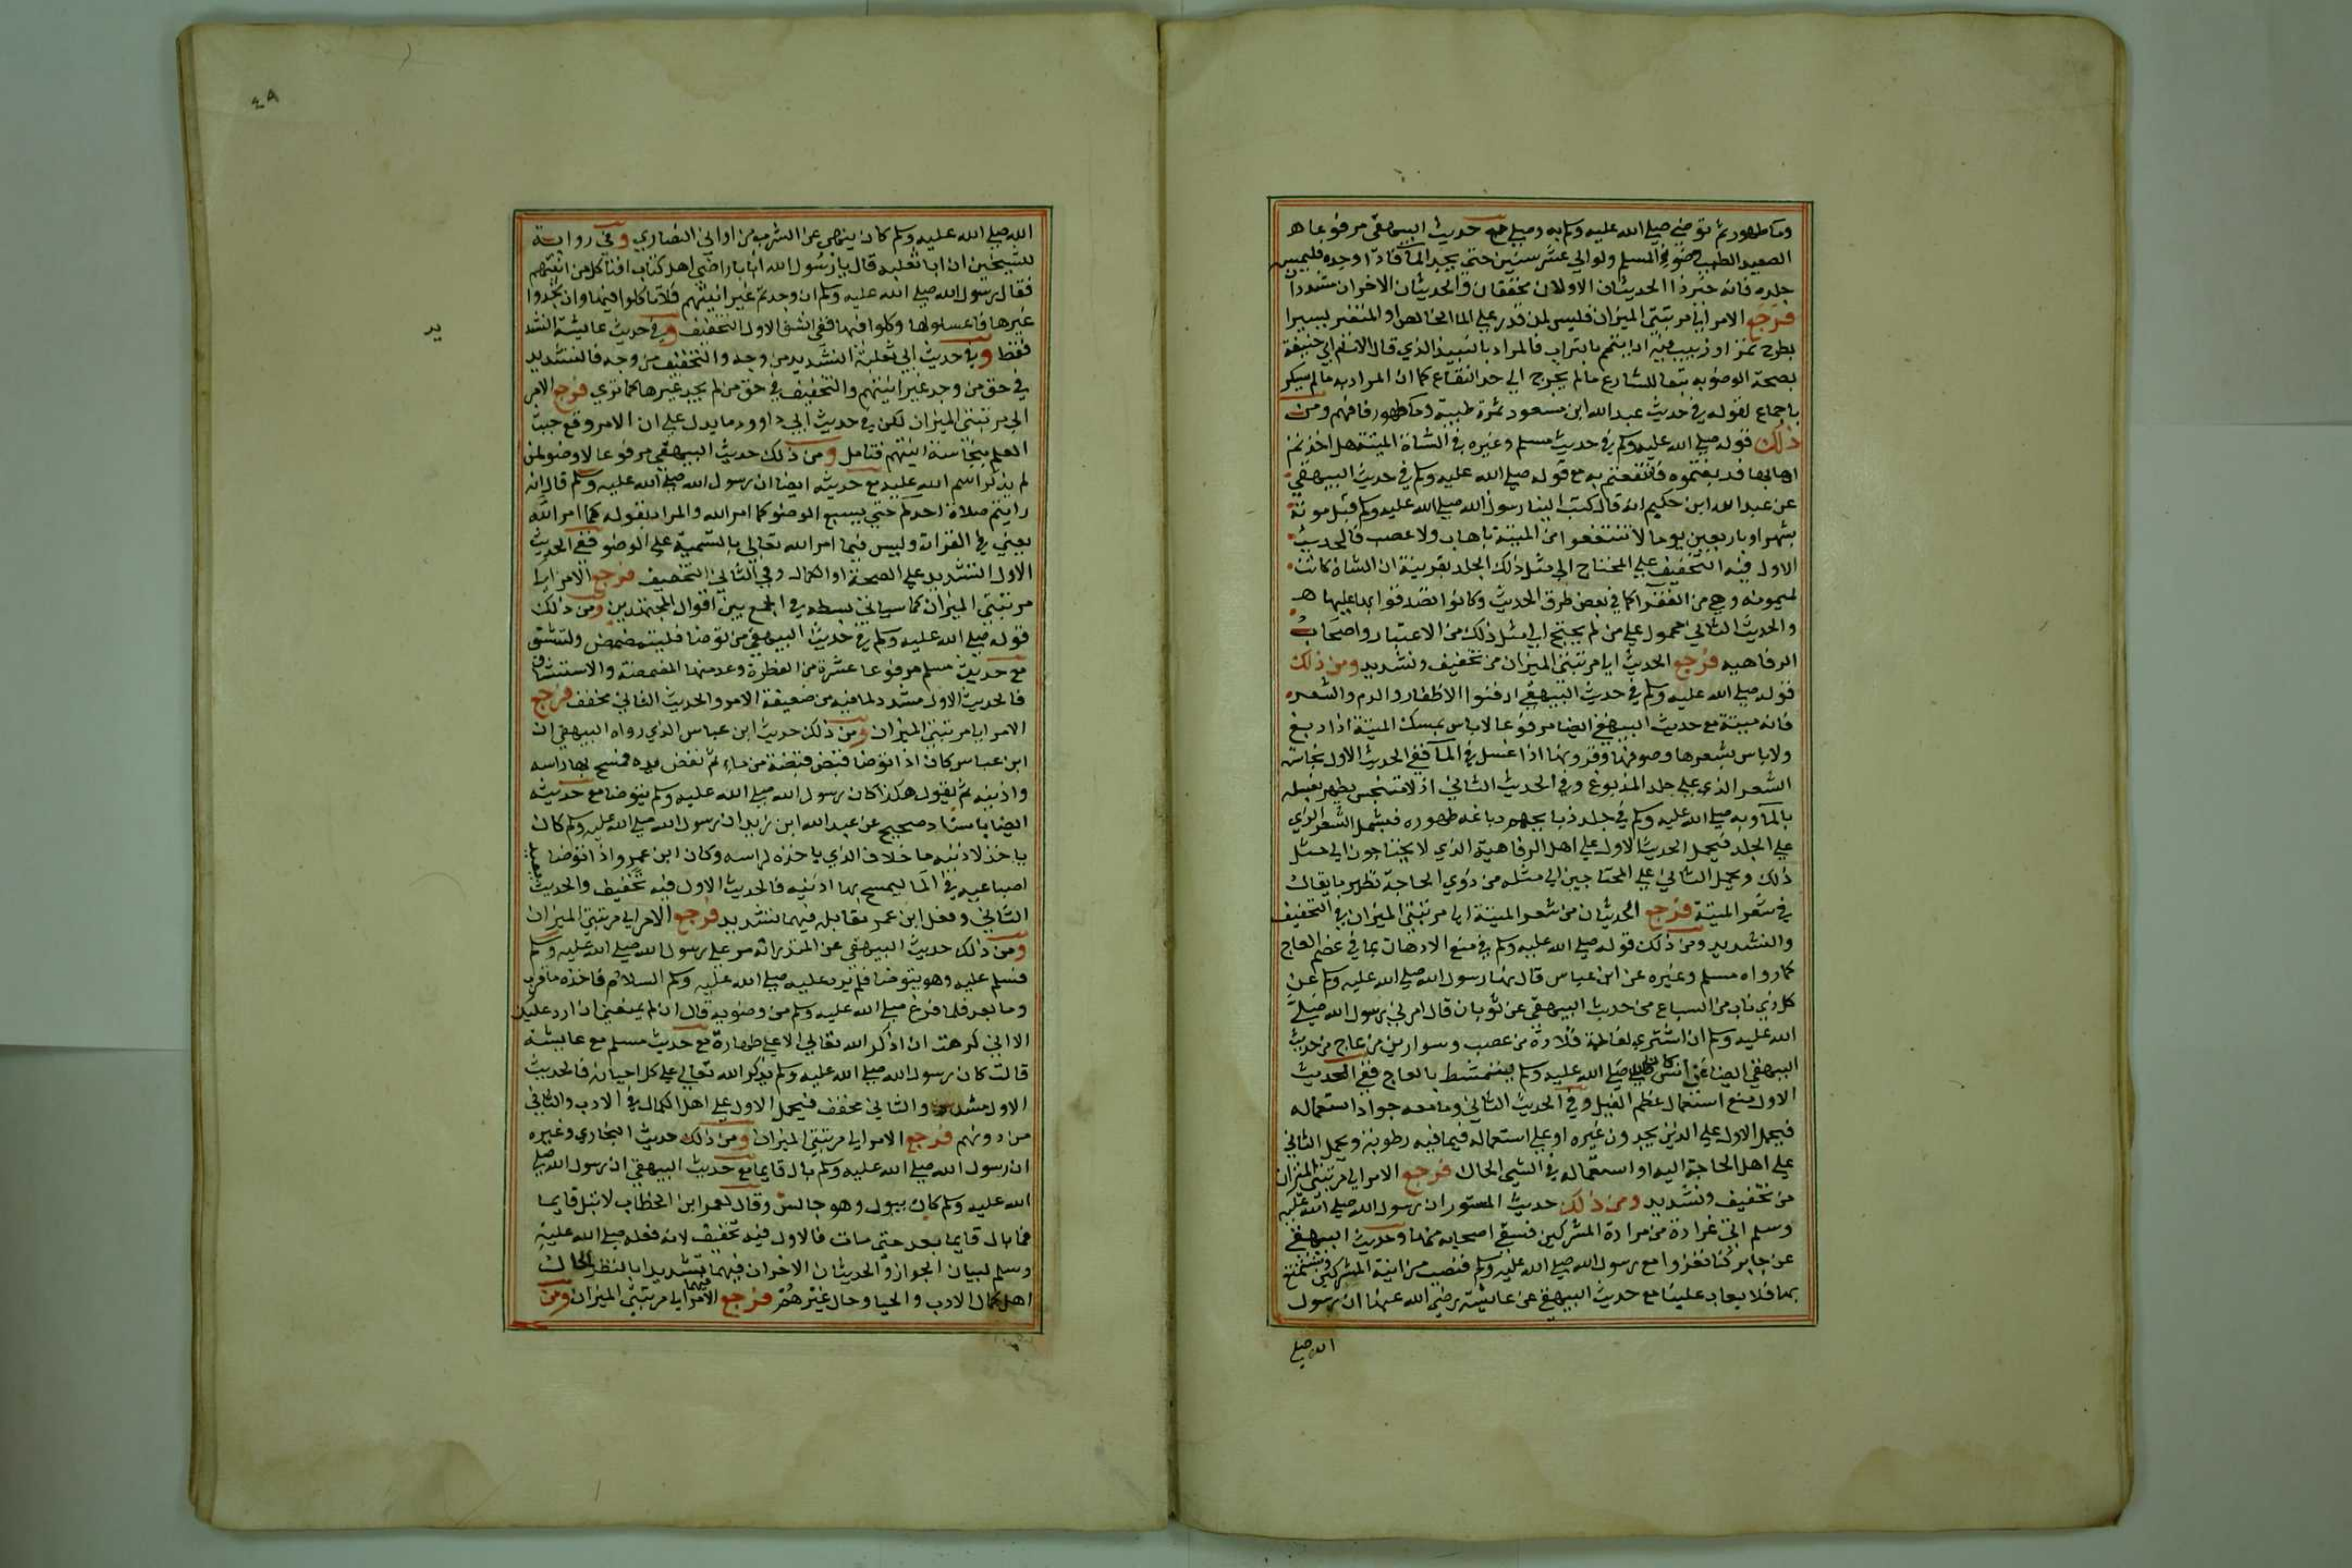 وماطهور ثم توضي صلي الله عليه وسلم به وصلي مع حديث البيهقي مرفوعا هـ
الصعيد الطيب وضو المسلم ولو الي عشر سنين حتي يجد الما فاذا وجده فليمس
جلده فانه خير ذا الحديثان الاولان مخففان والحديثان الاخران مشددان
فرجع الامر الي مرتبتي الميزان فليس لمن قدر علي الما الخالص او المتغير يسيرا
بطرح تمر او زبيب فيه ان يتيمم بالتراب فالمراد بالنبيذ الذي قال الامام ابي حنيفة
بصحة الوضو به تبعا للشارع مالم يخرج الي حد النقاع كما ان المراد به مالم يسكر
باجماع لقوله في حديث عبد الله ابن مسعود تمرة طيبة وما طهور فافهم ومن
ذلك قوله صلي الله عليه وسلم في حديث مسلم وغيره في الشاة الميتة هل اخذتم
اهابها فدبغتموه فانتفعتم به مع قوله صلي الله عليه وسلم في حديث البيهقي
عن عبد الله ابن حكيم انه قال كتب الينا رسول الله صلي الله عليه وسلم قبل موته
بشهر او باربعين يوما لا تنتفعوا من الميتة باهاب ولا عصب فالحديث
الاول فيه التخفيف علي المحتاج الي مثل ذلك الجلد بقرينة ان الشاة كانت
لميمونه وهي من الفقرا كما في بعض طرق الحديث وكانوا تصدقوا بها عليها هـ
والحديث الثاني محمول علي من لم يحتج الي مثل ذلك من الاعتبار واصحاب
الرفاهيه فرجع الحديث الي مرتبتي الميزان من تخفيف وتشديد ومن ذلك
قوله صلي الله عليه وسلم في حديث البيهقي ادفنوا الاظفار والدم والشعر
فانه ميتة مع حديث البيهقي ايضا مرفوعا لا باس بمسك الميتة اذا دبغ
ولا باس بشعرها وصوفها وقرونها اذا غسل في الما ففي الحديث الاول نجاسة
الشعر الذي علي جلد المدبوغ وفي الحديث الثاني اذ لا متنجس يطهر بغسله
بالما وبه صلي الله عليه وسلم في جلد ذبايحهم دباغه طهوره فيشمل الشعر الذي
علي الجلد فيحمل الحديث الاول علي اهل الرفاهية الذي لا يحتاجون الي مثل
ذلك ويحمل الثاني علي المحتاجين الي مثله من ذوي الحاجة نظير ما يقال
في شعر الميتة فرجع الحديثان من شعر الميتة الي مرتبتي الميزان في التخفيف
والتشديد ومن ذلك قوله صلي الله عليه وسلم في منع الادهان بما في عضم العاج
كما رواه مسلم وغيره عن ابن عباس قال نهانا رسول الله صلي الله عليه وسلم عن
كل ذي ناب من السباع من حديث البيهقي عن ثوبان قال امرني رسول الله صلي
الله عليه وسلم ان اشتري لفاطمة قلادة من عصب وسوارين من عاج من حديث
البيهقي ايضا عن انس كان النبي صلي الله عليه وسلم يتمشط بالعاج ففي الحديث
الاول منع استعمال عظم الفيل وفي الحديث الثاني وما معه جواز استعماله
فيحمل الاول علي الذين يجدون غيره او علي استعماله فيما فيه رطوبة ويحمل الثاني
علي اهل الحاجة اليه او استعماله في الشي الحال فرجع الامر الي مرتبتي الميزان
من تخفيف وتشديد ومن ذلك حديث المستور ان رسول الله صلي الله عليه
وسلم اتي غرادة من مرادة المشركين فسقي اصحابه منها وحديث البيهقي
عن جابر كنا نغزوا مع رسول الله صلي الله عليه وسلم فنصب من انية المشركين ونستمتع
بها فلا يعاب علينا مع حديث البيهقي عن عائشة رضي الله عنها ان رسول
الله صلي
٤٨
الله صلي الله عليه وسلم كان ينهي عن الشرب من اواني النصاري وفي رواية
للشيخين ان ابا ثعلبه قال يا رسول الله انا بارضي اهل كتاب افناكل من انيتهم
فقال رسول الله صلي الله عليه وسلم ان وجدتم غير انيتهم فلا تاكلوا فيها وان لم تجدوا
غيرها فاغسلوها وكلوا فيها ففي الشق الاول التخفيف وفي حديث عائشة التشد
يد
فقط وفي حديث ابي ثعلبة التشديد من وجه والتخفيف من وجه فالتشديد
في حق من وجد غير انيتهم والتخفيف في حق من لم يجد غيرها كما تري فرجع الامر
الي مرتبتي الميزان لكن في حديث ابي داوود ما يدل علي ان الامر وقع حيث
العلم بنجاسة انيتهم فتامل ومن ذلك حديث البيهقي مرفوعا لا وضو لمن
لم يذكر اسم الله عليه مع حديثه ايضا ان رسول الله صلي الله عليه وسلم قال انه
رايتم صلاة احدكم حتي يسبغ الوضو كما امر الله والمراد بقوله كما امر الله
يعني في القران وليس فيما امر الله تعالي بالتسمية علي الوضو ففي الحديث
الاول التشديد علي الصحة او الكمال وفي الثاني التخفيف فرجع الامر الي
مرتبتي الميزان كما سياتي بسطه في الجمع بين اقوال المجتهدين ومن ذلك
قوله صلي الله عليه وسلم في حديث البيهقي من توضا فليتمضمض وليستنشق
مع حديث مسلم مرفوعا عشرة من الفطرة وعد منها المضمضة والاستنشاق
فالحديث الاول مشدد لما فيه من ضعيفة الامر والحديث الثاني مخفف فرجع
الامر الي مرتبتي الميزان ومن ذلك حديث ابن عباس الذي رواه البيهقي ان
ابن عباس كان اذا توضا قبض قبضة من ماء ثم نفض يده فمسح بها راسه
واذنيه ثم يقول هكذا كان رسول الله صلي الله عليه وسلم يتوضا مع حديثه
ايضا باسناد صحيح عن عبد الله ابن زيد ان رسول الله صلي الله عليه وسلم كان
ياخذ لاذنيه ما خلاف الذي ياخذه لراسه وكان ابن عمر واذا توضا
اصباعيه في الما ليمسح بها اذنيه فالحديث الاول فيه تخفيف والحديث
الثاني وفعل ابن عمر بمقابله فيهما تشديد فرجع الامر الي مرتبتي الميزان
ومن ذلك حديث البيهقي عن المنذر انه مر علي رسول الله صلي الله عليه وسلم
فسلم عليه وهو يتوضا فلم يرد عليه صلي الله عليه وسلم السلام فاخذه ما قرب
وما بعد فلما فرغ صلي الله عليه وسلم من وضويه قال ان لم يمنعني ان ارد عليك
الا اني كرهت ان اذكر الله تعالي الا علي طهارة مع حديث مسلم مع عايشة
قالت كان رسول الله صلي الله عليه وسلم يذكر الله تعالي علي كل احيانه فالحديث
الاول مشدد والثاني مخفف فيحمل الاول علي اهل الكمال في الادب والثاني
من دونهم فرجع الامر الي مرتبتي الميزان ومن ذلك حديث البخاري وغيره
ان رسول الله صلي الله عليه وسلم بال قايما مع حديث البيهقي ان رسول الله صلي
الله عليه وسلم كان يبول وهو جالس وقال لعمر ابن الخطاب لا تبل قايما
فما بال قايما بعد حتي مات فالاول فيه تخفيف لانه فعله صلي الله عليه
وسلم لبيان الجواز والحديثان الاخران فيهما تشديد بالنظر لحال
اهل كمال الادب والحيا وحال غيرهم فرجع الامر الي مرتبتي الميزان ومن